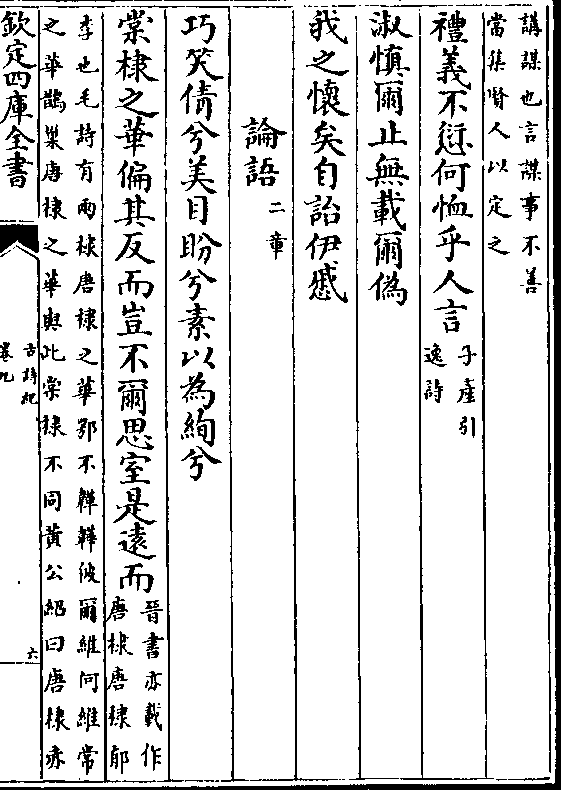 講謀也言謀事不善
當集賢人以定之
禮義不愆何恤乎人言子產引
逸詩
淑慎爾止無載爾偽
我之懷矣自詒伊慼
論語二章
巧笑倩兮美目盼兮素以為絢兮
棠棣之華偏其反而豈不爾思室是遠而晉書亦載作
唐棣唐棣郁
李也毛詩有兩棣唐棣之華鄂不韡韡彼爾維何維常
之華鵲巢唐棣之華與此棠棣不同黃公紹曰唐棣亦
欽定四庫全書
古詩紀
卷九
六